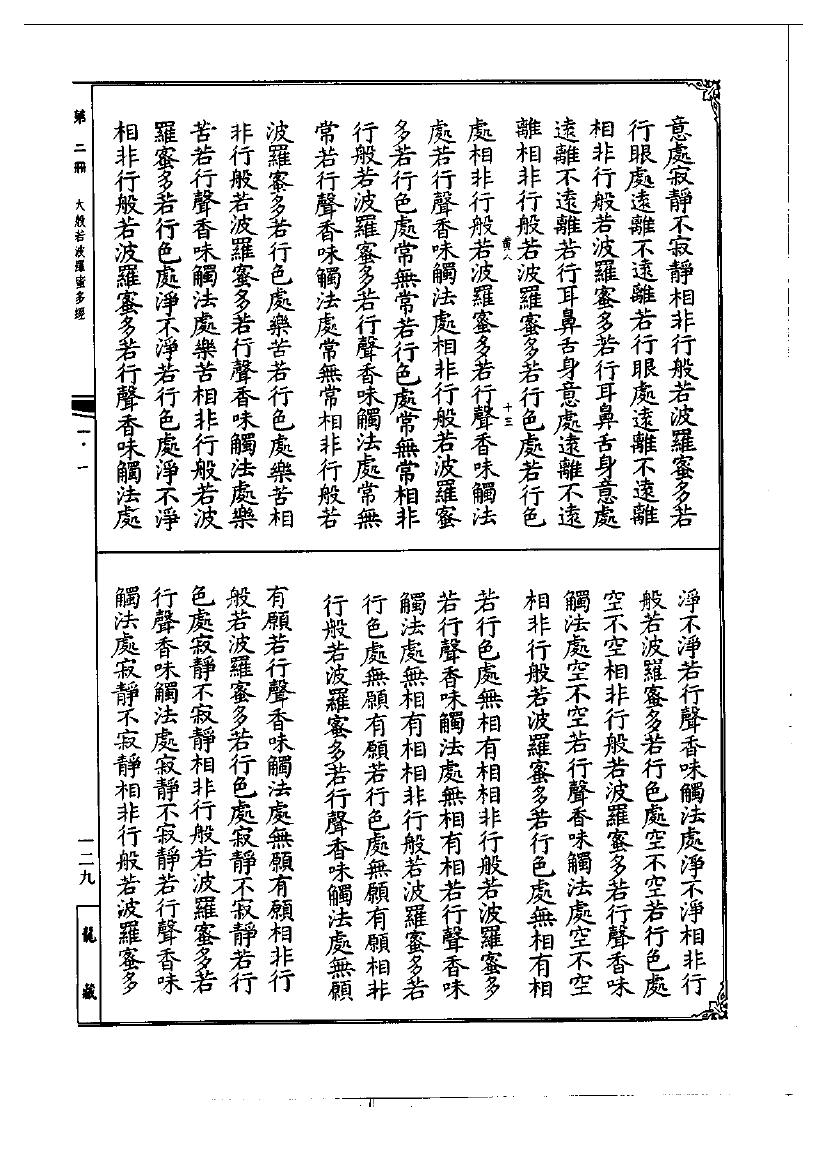 意處寂靜不寂靜相非行般若波羅蜜多若
行眼處遠離不遠離若行眼處遠離不遠離
相非行般若波羅蜜多若行耳鼻舌身意處
遠離不遠離若行耳鼻舌身意處遠離不遠
離相非行般若波羅蜜多若行色處若行色
黃八 十三
處相非行般若波羅蜜多若行聲香味觸法
處若行聲香味觸法處相非行般若波羅蜜
多若行色處常無常若行色處常無常相非
行般若波羅蜜多若行聲香味觸法處常無
常若行聲香味觸法處常無常相非行般若
波羅蜜多若行色處樂苦若行色處樂苦相
非行般若波羅蜜多若行聲香味觸法處樂
苦若行聲香味觸法處樂苦相非行般若波
羅蜜多若行色處淨不淨若行色處淨不淨
相非行般若波羅蜜多若行聲香味觸法處
淨不淨若行聲香味觸法處淨不淨相非行
般若波羅蜜多若行色處空不空若行色處
空不空相非行般若波羅蜜多若行聲香味
觸法處空不空若行聲香味觸法處空不空
相非行般若波羅蜜多若行色處無相有相
若行色處無相有相相非行般若波羅蜜多
若行聲香味觸法處無相有相若行聲香味
觸法處無相有相相非行般若波羅蜜多若
行色處無願有願若行色處無願有願相非
行般若波羅蜜多若行聲香味觸法處無願
有願若行聲香味觸法處無願有願相非行
般若波羅蜜多若行色處寂靜不寂靜若行
色處寂靜不寂靜相非行般若波羅蜜多若
行聲香味觸法處寂靜不寂靜若行聲香味
觸法處寂靜不寂靜相非行般若波羅蜜多
第二冊 大般若波羅蜜多經
一·一
一二九
龍藏